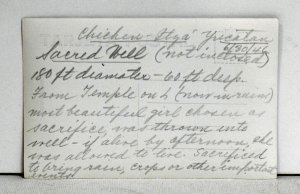 Chicken-Itza' Yucatan
Sacred Well (not inclosed)
180 ft diameter - 60 ft deep
From Temple on L (now in ruin)
most beautiful girl chosen as
sacrifice, was thrown into
well - if alive by afternoon, she
was allowed to live. Sacrificed
to bring rain, crops or other important
events.